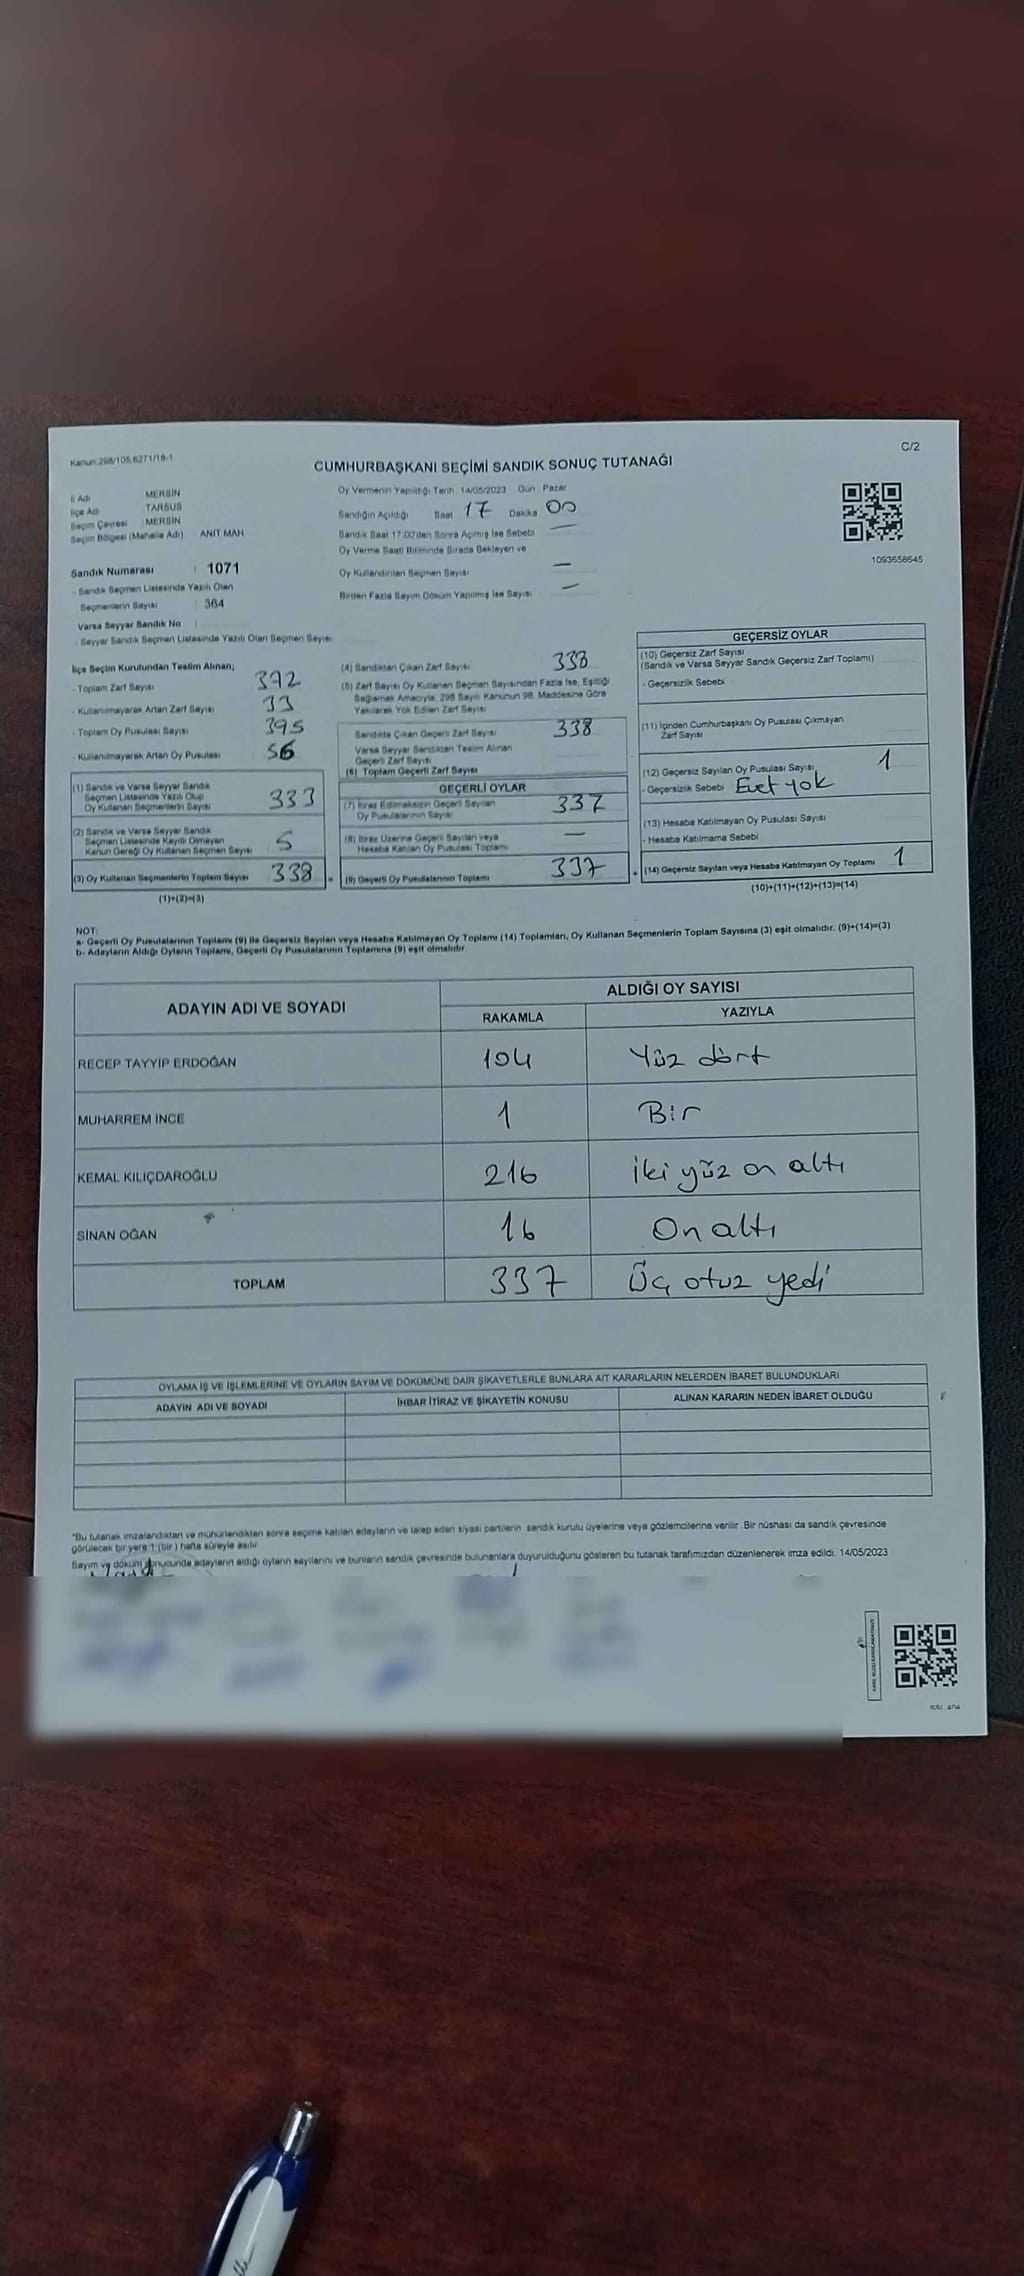 Kanun:298/105,6271/18-1
C/2
CUMHURBAŞKANI SEÇİMİ SANDIK SONUÇ TUTANAĞI
İl Adı MERSİN
İlçe Adı TARSUS
Seçim Çevresi : MERSİN
Seçim Bölgesi (Mahalle Adı) ANIT MAH
Sandık Numarası : 1071
- Sandık Seçmen Listesinde Yazılı Olan
Seçmenlerin Sayısı : 364
Varsa Seyyar Sandık No :
- Seyyar Sandık Seçmen Listesinde Yazılı Olan Seçmen Sayısı:
Oy Vermenin Yapıldığı Tarih : 14/05/2023 Gün : Pazar
Sandığın Açıldığı Saat 17 Dakika 00
Sandık Saat 17:00'den Sonra Açılmış İse Sebebi —
Oy Verme Saati Bitiminde Sırada Bekleyen ve
Oy Kullandırılan Seçmen Sayısı —
Birden Fazla Sayım Döküm Yapılmış İse Sayısı —
1093658645
İlçe Seçim Kurulundan Teslim Alınan;
- Toplam Zarf Sayısı 392
- Kullanılmayarak Artan Zarf Sayısı 33
- Toplam Oy Pusulası Sayısı 395
- Kullanılmayarak Artan Oy Pusulası 56
(1) Sandık ve Varsa Seyyar Sandık
Seçmen Listesinde Yazılı Olup
Oy Kullanan Seçmenlerin Sayısı 333
(2) Sandık ve Varsa Seyyar Sandık
Seçmen Listesinde Kayıtlı Olmayan
Kanun Gereği Oy Kullanan Seçmen Sayısı 5
(3) Oy Kullanan Seçmenlerin Toplam Sayısı 338
(1)+(2)=(3)
(4) Sandıktan Çıkan Zarf Sayısı 338
(5) Zarf Sayısı Oy Kullanan Seçmen Sayısından Fazla İse, Eşitliği
Sağlamak Amacıyla, 298 Sayılı Kanunun 98. Maddesine Göre
Yakılarak Yok Edilen Zarf Sayısı
Sandıkta Çıkan Geçerli Zarf Sayısı 338
Varsa Seyyar Sandıktan Teslim Alınan
Geçerli Zarf Sayısı
(6) Toplam Geçerli Zarf Sayısı
GEÇERLİ OYLAR
(7) İtiraz Edilmeksizin Geçerli Sayılan
Oy Pusulalarının Sayısı 337
(8) İtiraz Üzerine Geçerli Sayılan veya
Hesaba Katılan Oy Pusulası Toplamı —
= (9) Geçerli Oy Pusulalarının Toplamı 337
GEÇERSİZ OYLAR
(10) Geçersiz Zarf Sayısı
(Sandık ve Varsa Seyyar Sandık Geçersiz Zarf Toplamı)
- Geçersizlik Sebebi
(11) İçinden Cumhurbaşkanı Oy Pusulası Çıkmayan
Zarf Sayısı
(12) Geçersiz Sayılan Oy Pusulası Sayısı 1
- Geçersizlik Sebebi Evet yok
(13) Hesaba Katılmayan Oy Pusulası Sayısı
- Hesaba Katılmama Sebebi
+ (14) Geçersiz Sayılan veya Hesaba Katılmayan Oy Toplamı 1
(10)+(11)+(12)+(13)=(14)
NOT:
a- Geçerli Oy Pusulalarının Toplamı (9) ile Geçersiz Sayılan veya Hesaba Katılmayan Oy Toplamı (14) Toplamları, Oy Kullanan Seçmenlerin Toplam Sayısına (3) eşit olmalıdır. (9)+(14)=(3)
b- Adayların Aldığı Oyların Toplamı, Geçerli Oy Pusulalarının Toplamına (9) eşit olmalıdır.
ADAYIN ADI VE SOYADI
ALDIĞI OY SAYISI
RAKAMLA YAZIYLA
RECEP TAYYİP ERDOĞAN 104 Yüz dört
MUHARREM İNCE 1 Bir
KEMAL KILIÇDAROĞLU 216 iki yüz on altı
SİNAN OĞAN 16 On altı
TOPLAM 337 Üç otuz yedi
OYLAMA İŞ VE İŞLEMLERİNE VE OYLARIN SAYIM VE DÖKÜMÜNE DAİR ŞİKAYETLERLE BUNLARA AİT KARARLARIN NELERDEN İBARET BULUNDUKLARI
ADAYIN ADI VE SOYADI İHBAR İTİRAZ VE ŞİKAYETİN KONUSU ALINAN KARARIN NEDEN İBARET OLDUĞU
*Bu tutanak imzalandıktan ve mühürlendikten sonra seçime katılan adayların ve talep eden siyasi partilerin sandık kurulu üyelerine veya gözlemcilerine verilir. Bir nüshası da sandık çevresinde
görülecek bir yere 1 (bir) hafta süreyle asılır.
Sayım ve döküm sonucunda adayların aldığı oyların sayılarını ve bunların sandık çevresinde bulunanlara duyurulduğunu gösteren bu tutanak tarafımızdan düzenlenerek imza edildi. 14/05/2023